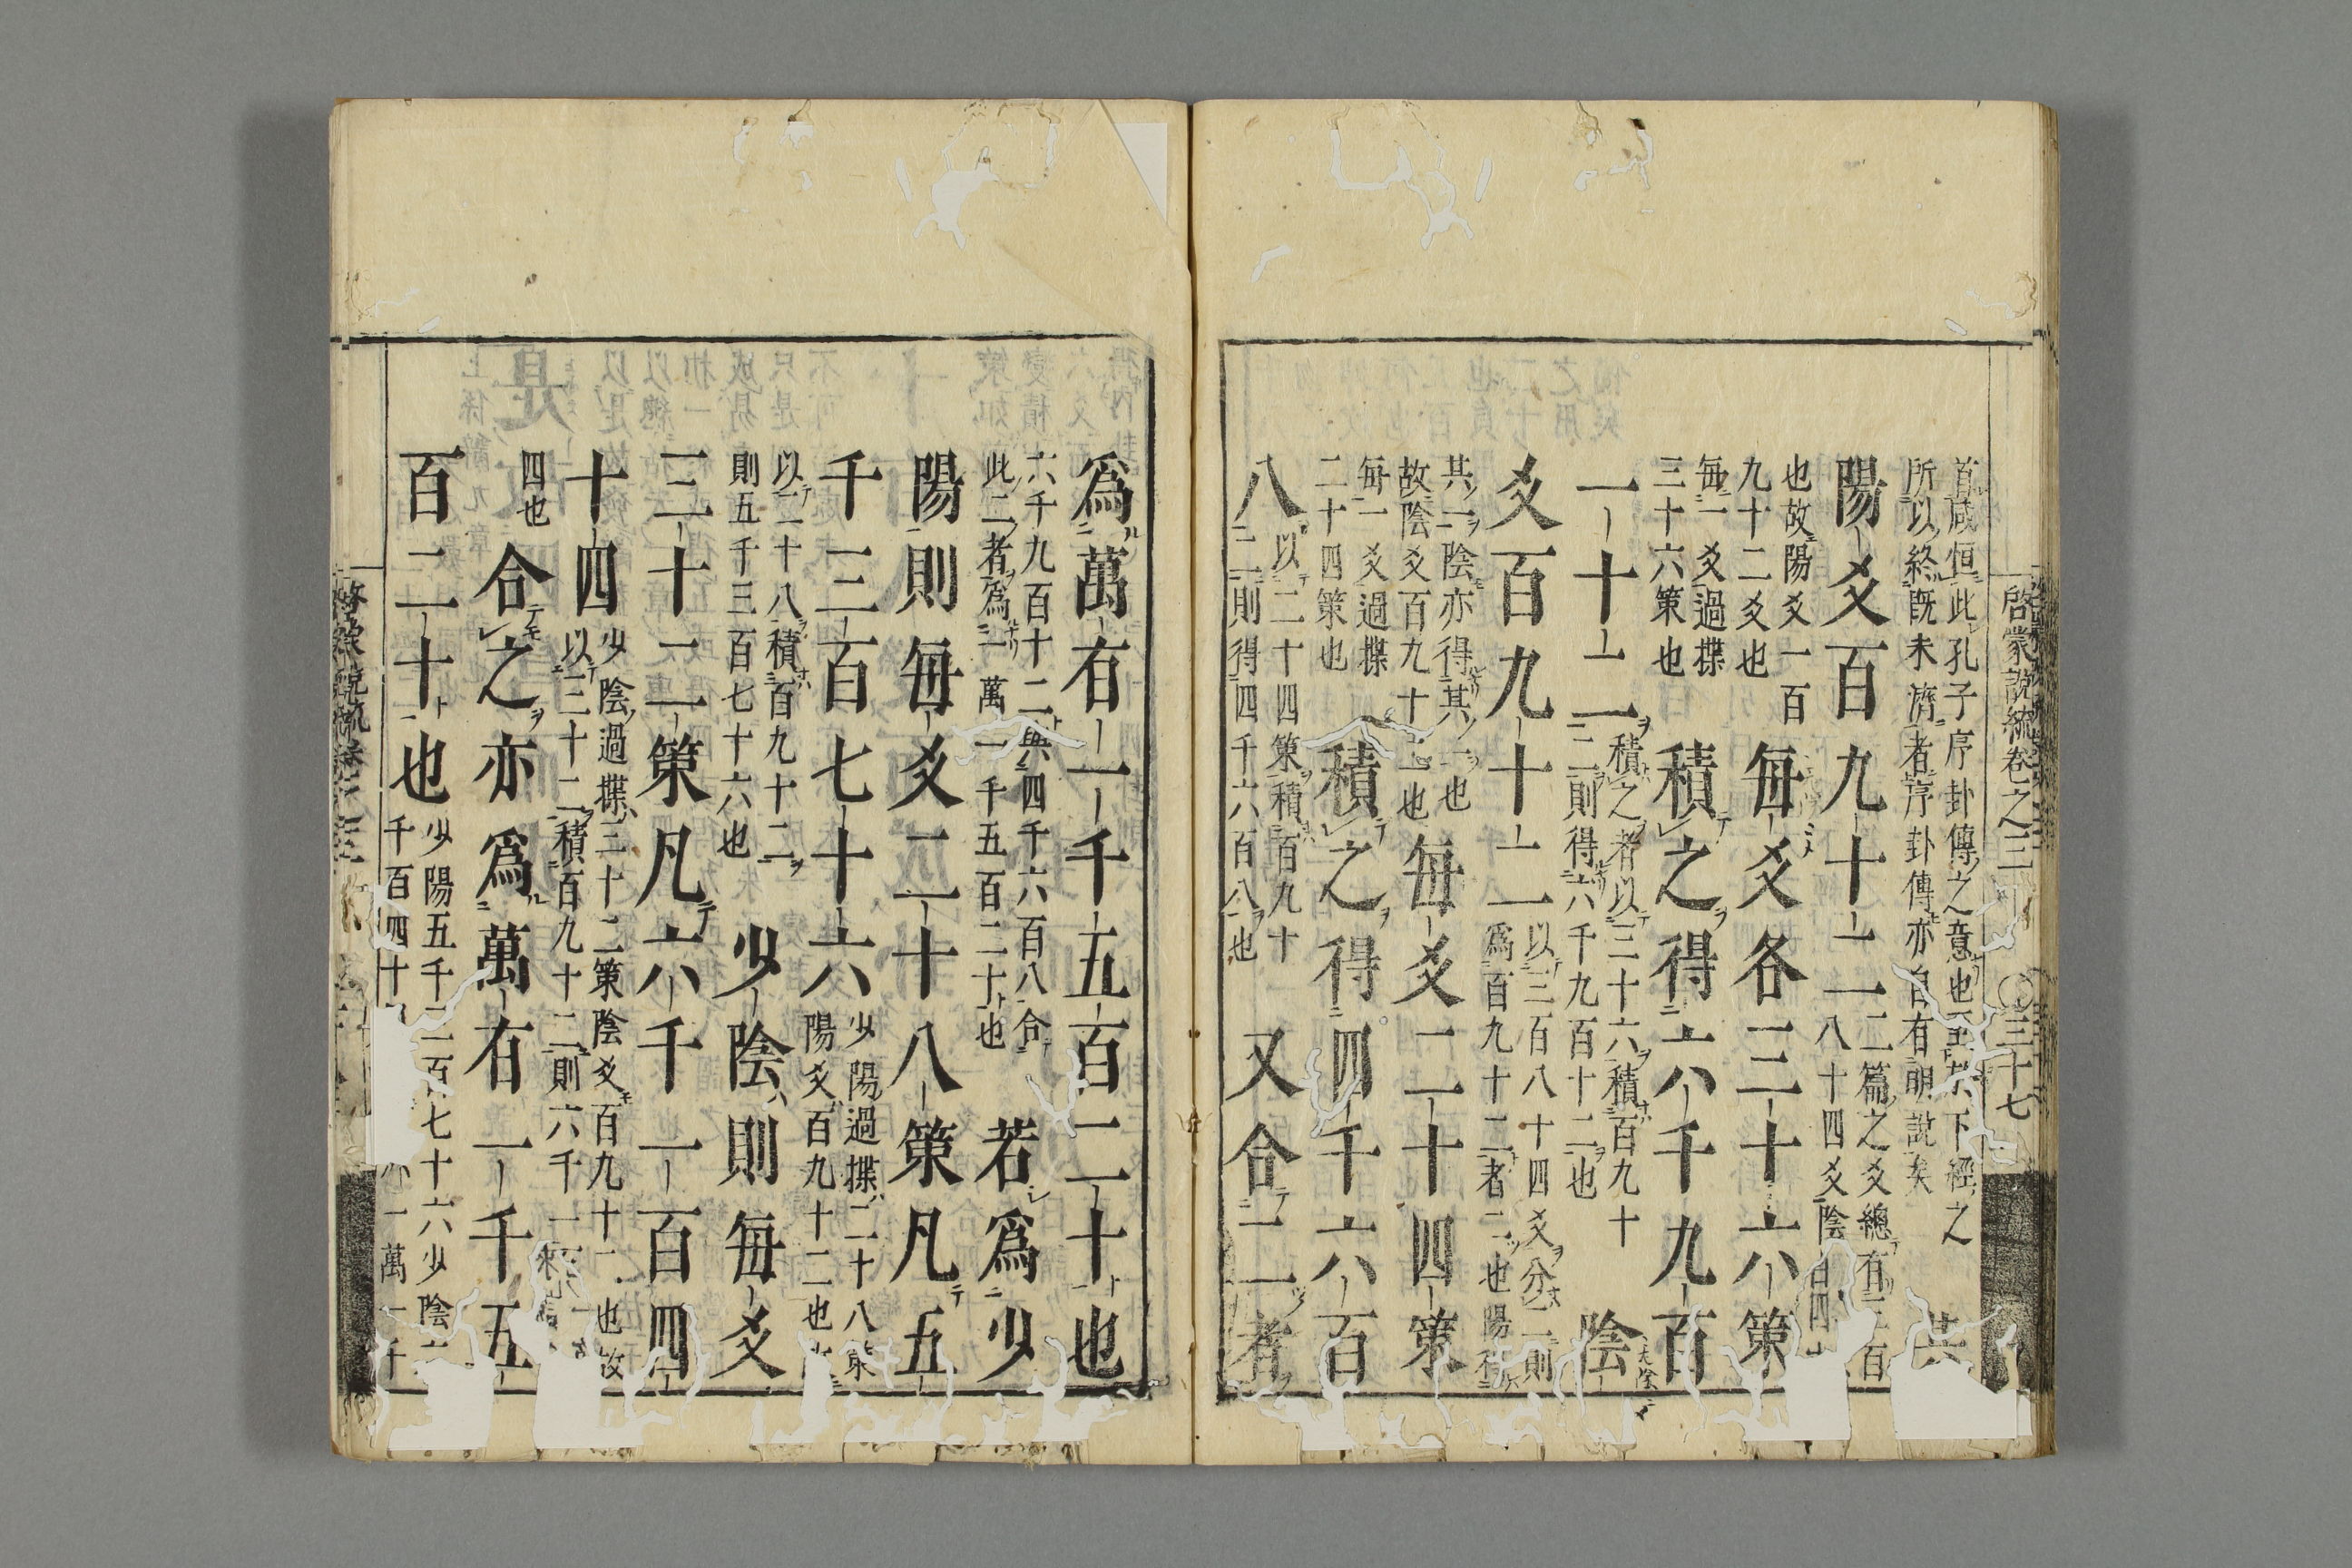 啓蒙說統卷之三
三十七
首咸恒此孔子序卦傳之意也至於下經之
所以終既未濟者序卦傳亦自有明說矣
其
陽爻百九十二
二篇之爻總有三百
八十四爻陰
也故陽爻一百
九十二爻也
每爻各三十六策
每一爻過揲
三十六策也
積之得六千九百
一十二
積之者以三十六積百九十
二則得六千九百十二也
陰
爻百九十二
以三百八十四爻分二則
爲百九十二者二也陽得
其一陰亦得其一也
故陰爻百九十二也
每爻二十四策
每一爻過揲
二十四策也
積之得四千六百
八
以二十四策積百九十
二則得四千六百八也
又合二者
爲萬有一千五百二十也
六千九百十二與四千六百八合
此二者爲一萬一千五百二十也
若爲少
陽則每爻二十八策凡五
千三百七十六
少陽過揲二十八策
陽爻百九十二也故
以二十八積百九十二
則五千三百七十六也
少陰則每爻
三十二策凡六千一百四
十四
少陰過揲三十二策陰爻百九十二也故
以三十二積百九十二則六千一
四也
合之亦爲萬有一千五
百二十也
少陽五千三百七十六少陰六
千百四十
一萬一千